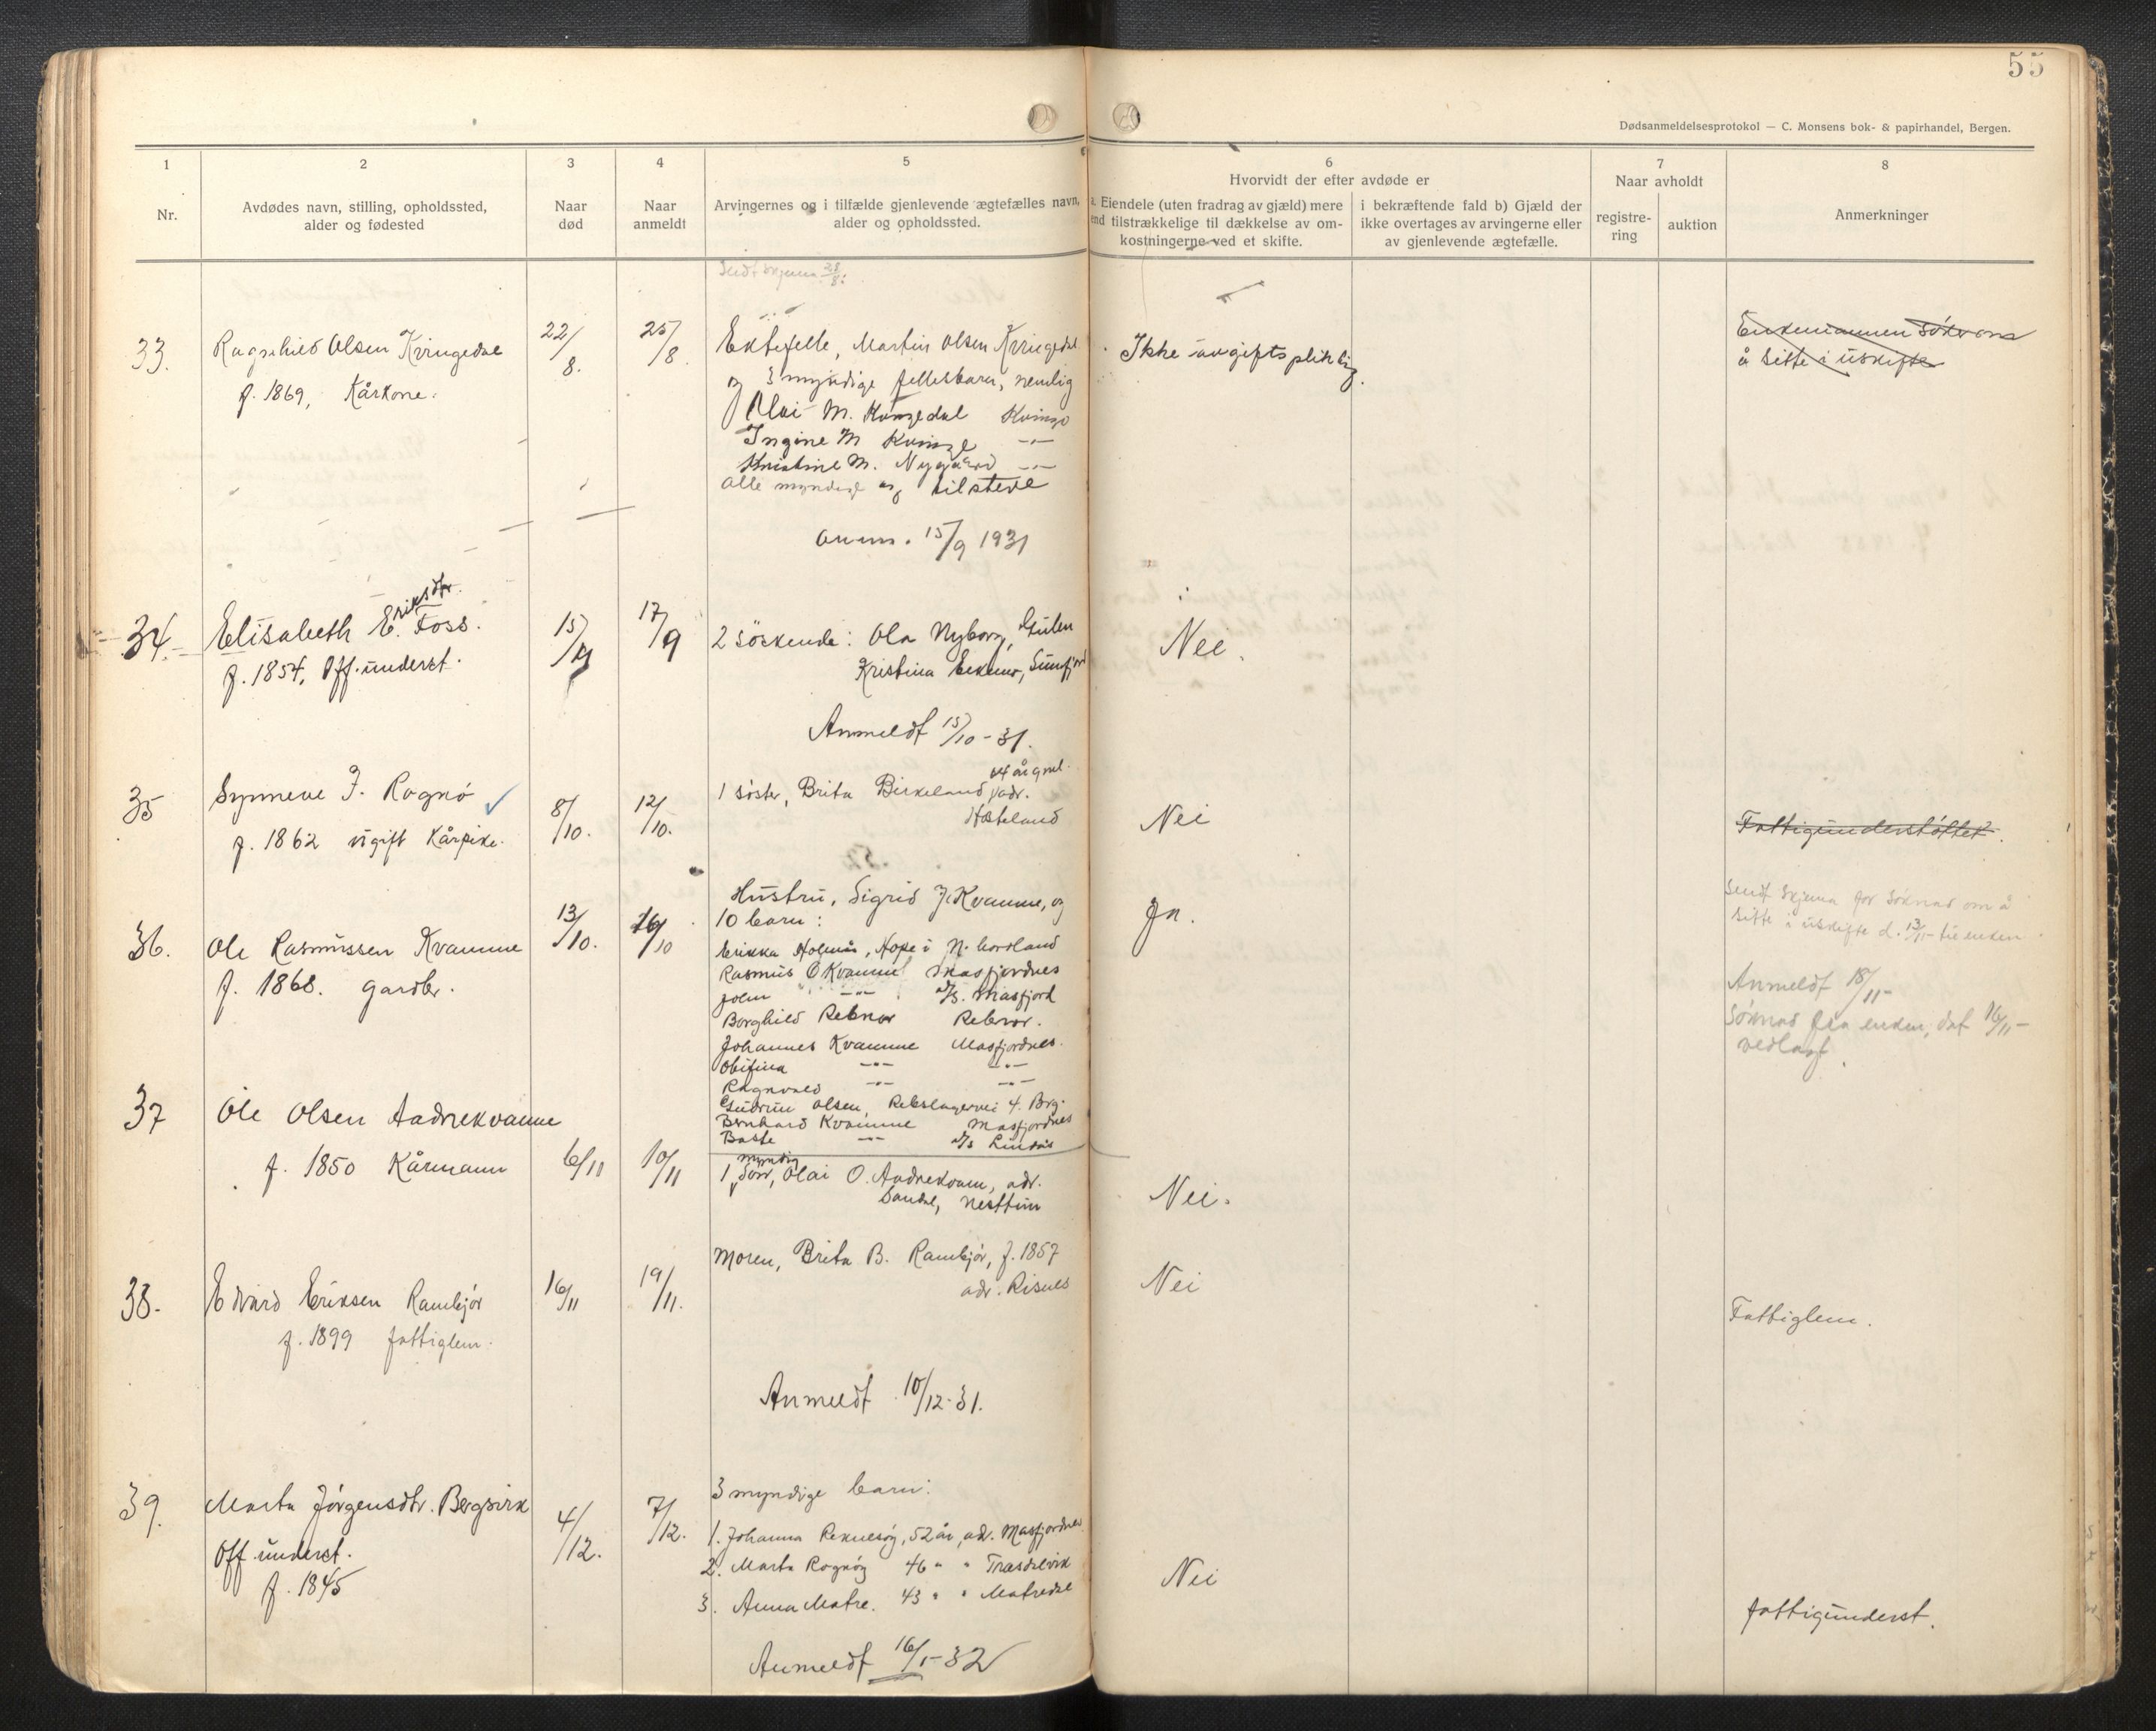 55
Dødsanmeldelsesprotokol — C. Monsens bok- & papirhandel, Bergen.
1
Nr.
2
Avdødes navn, stilling, opholdssted,
alder og fødested
3
Naar
død
4
Naar
anmeldt
5
Arvingernes og i tilfælde gjenlevende ægtefælles navn,
alder og opholdssted.
6
Hvorvidt der efter avdøde er
a. Eiendele (uten fradrag av gjæld) mere
end tilstrækkelige til dækkelse av om-
kostningerne ved et skifte.
i bekræftende fald b) Gjæld der
ikke overtages av arvingerne eller
av gjenlevende ægtefælle.
7
Naar avholdt
registre-
ring
auktion
8
Anmerkninger
Sendt skjema 28/8.
33.
Ragnhild Olsen Kvingedal
f. 1869, Kårkone.
22/8.
25/8
Ektefelle, Martin Olsen Kvingedal
og 3 myndige fellesbarn, nemlig
Olai M. Kvingedal Kvinge
Ingine M Kvinge -"-
Kristine M. Nygård -"-
alle myndige og tilstede
Ikke avgiftspliktig.
Enkemannen søker om
å sitte i uskifte
anm. 15/9 1931
34.
Elisabeth Eriksdtr. Foss.
f. 1854, Off. underst.
15/9
17/9
2 söskende: Ola Nyborg, Gulen
Kristina, Sunnfjord
Nei.
Anmeldt 15/10-31.
35
Synneve J. Rognö
f. 1862 ugift Kårpike.
8/10.
12/10.
1 söster, Brita Birkeland, adr.
64 år gml.
Hosteland
Nei
Fattigunderstöttet.
36.
Ole Rasmussen Kvamme
f. 1868. gardbr.
13/10.
16/10
Hustru, Sigrid J. Kvamme, og
10 barn:
Erikka Holmås, Hope i N. hordland
Rasmus O Kvamme Masfjordnes
John -"- D/S. Masfjord
Borghild Rebnor Rebnor.
Johannes Kvamme Masfjordnes.
-"- -"-
Ragnvald -"- -"-
Gudrun Olsen, Rebslagervei 4. Brg.
Bernhard Kvamme Masfjordnes
Baste -"- D/S Lindås
Ja.
Sendt skjema for söknad om å
sitte i uskifte d. 13/11- til enken.
Anmeldt 18/11-
Söknad fra enken, dat 16/11-
vedlagt.
37
Ole Olsen Aadnekvamme
f. 1850 Kårmann
6/11
10/11
1 myndig sönn, Olai O. Aadnekvam, adr.
Sandal, Nesttun
Nei.
38.
Edvard Eriksen Rambjör
f. 1899 fattiglem.
16/11
19/11.
Moren, Brita B. Rambjör, f. 1857
adr. Risnes
Nei
Fattiglem.
Anmeldt 10/12-31.
39.
Marta Jörgensdtr. Bergsvik
Off. underst.
f. 1845
4/12.
7/12.
3 myndige barn:
1. Johanna Reknesög, 52 år, adr. Masfjordnes
2. Marta Rognög 46 " " Trasdalvik
3. Anna Matre. 43 " " Matredal
Nei
fattigunderst.
Anmeldt 16/1-32